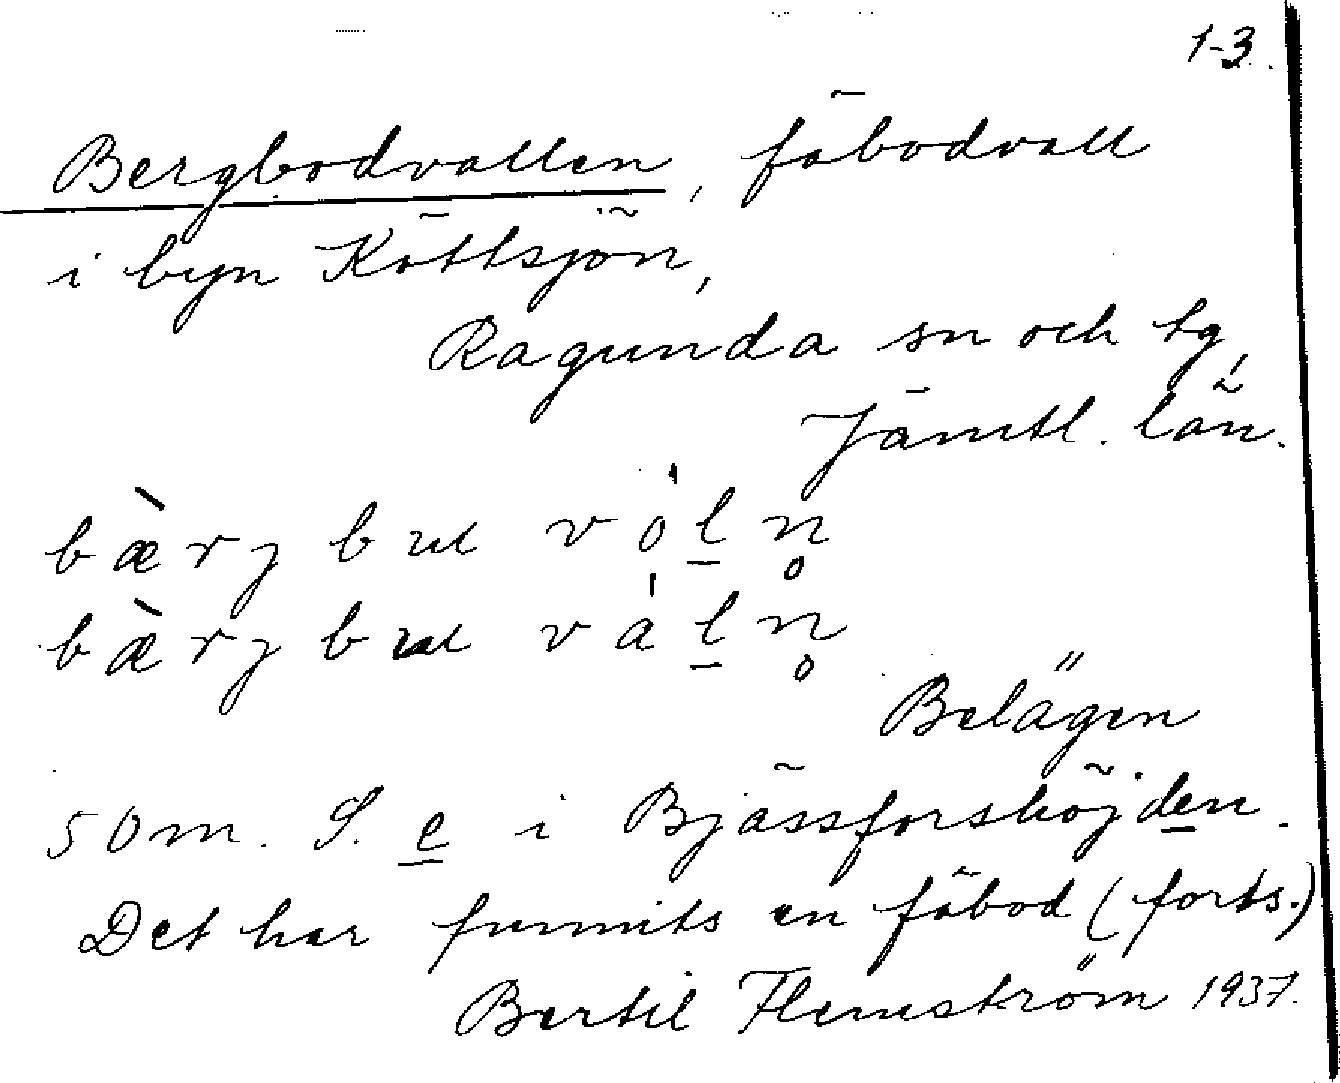 1-3.
Bergbodvallen, fäbodvall
i byn Köttsjön,
Ragunda sn och tg,
Jämtl. län.
bæ̀rj bɯt vó̍l̲n̥
bæ̀rj bɯt vá̍l̲n̥
Belägen
50m. S. e i Bjässforshöjden.
Det har funnits en fäbod (forts.)
Bertil Flemström 1937.